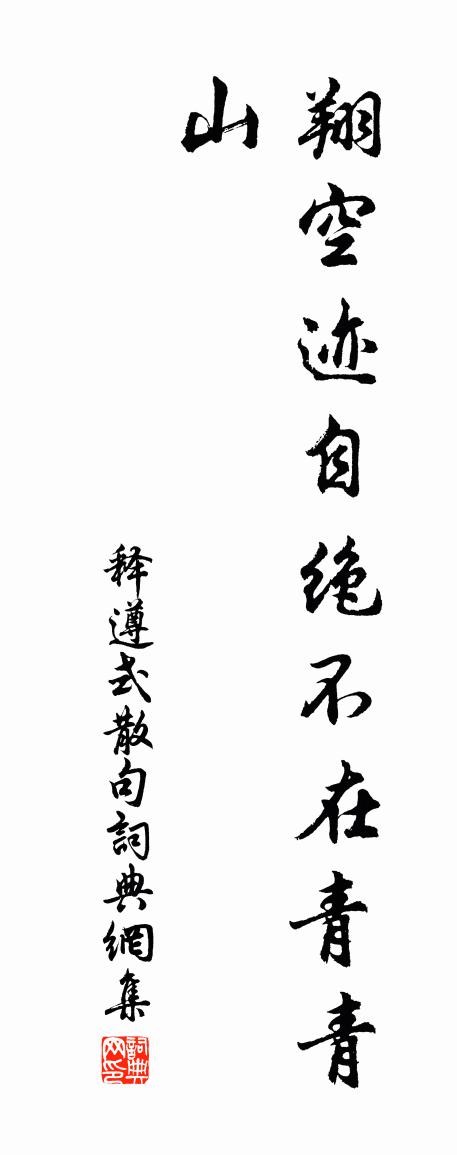 翔空迹自绝不在青青
山
释遵式散句詞典網集
詞典网印